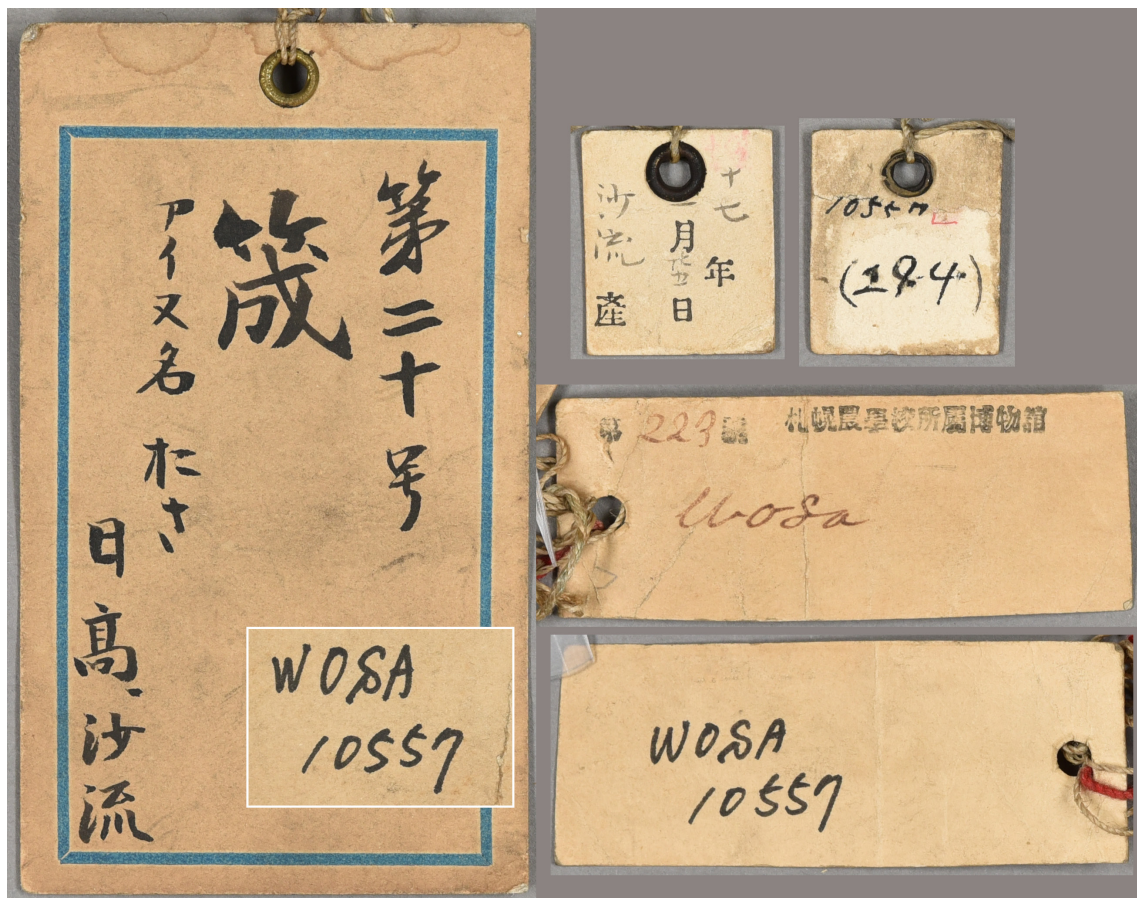 第二十号
筬
アイヌ名 おさ
日高、沙流
WOSA
10557
十七年
月廿五日
沙流產
10557
第 223 號 札幌農學校所屬博物館
Wosa
WOSA
10557